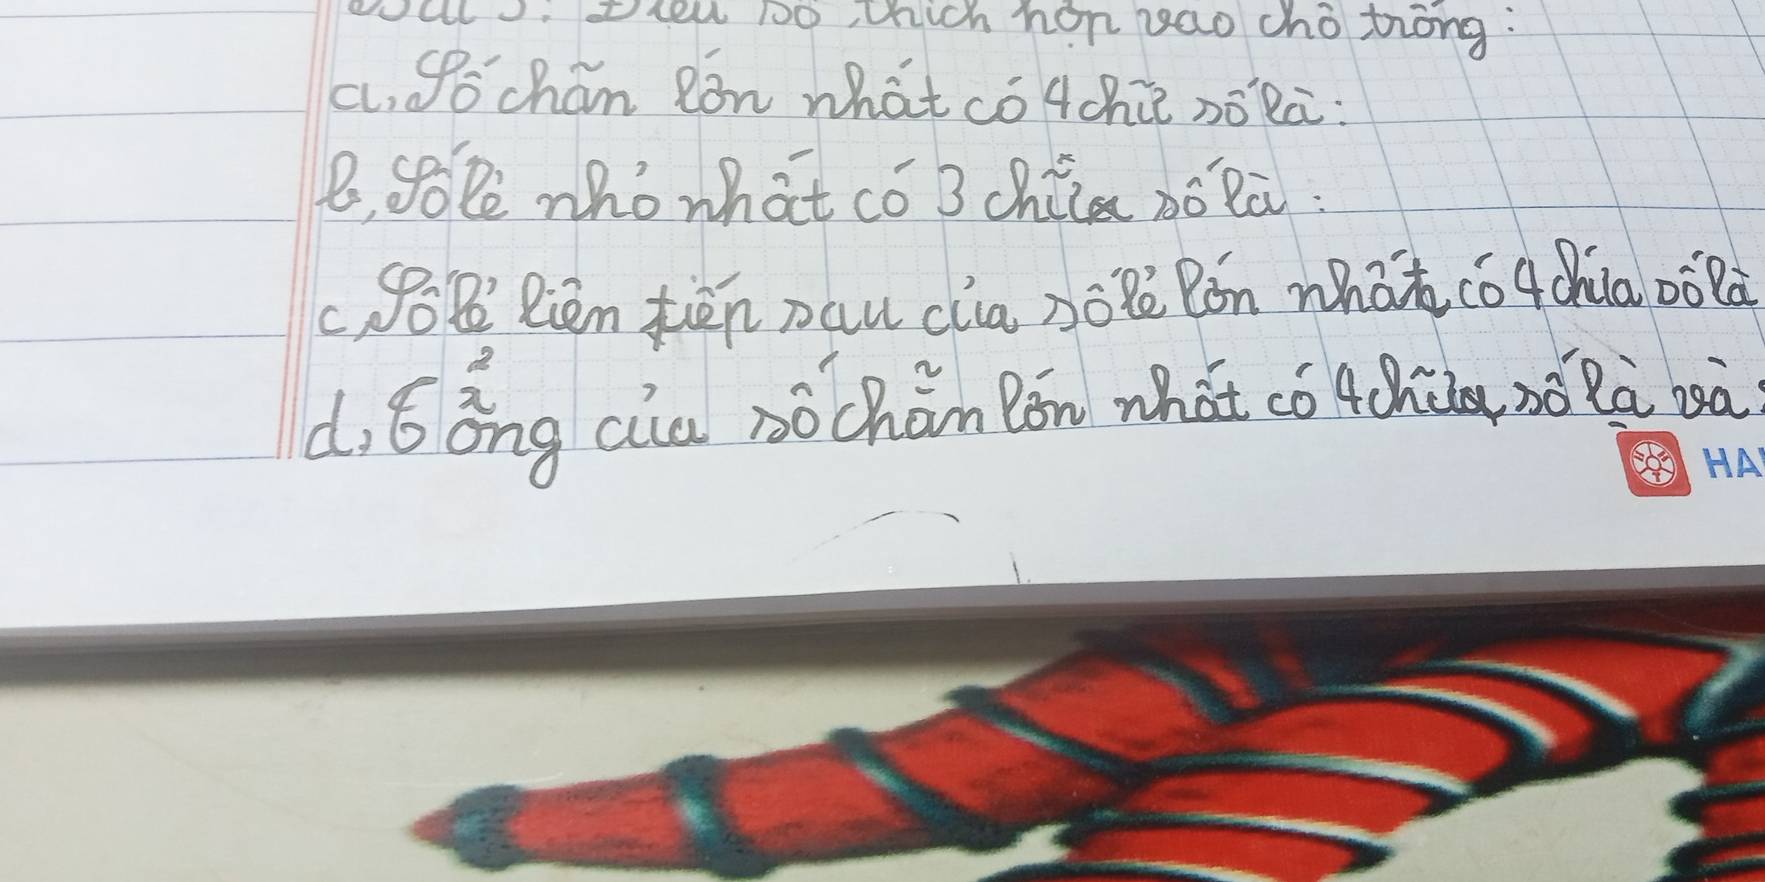 Bài 5: Điều số thích hợp vào chỗ trống:
a, Số chẵn lớn nhất có 4 chữ số là:
b, Số lẻ nhỏ nhất có 3 chữ số là:
c, Số lẻ liền tiếp sau của số lẻ lớn nhất có 4 chữa số là
d, Tổng của số chẵn lớn nhất có 4 chữ số là và:
HA